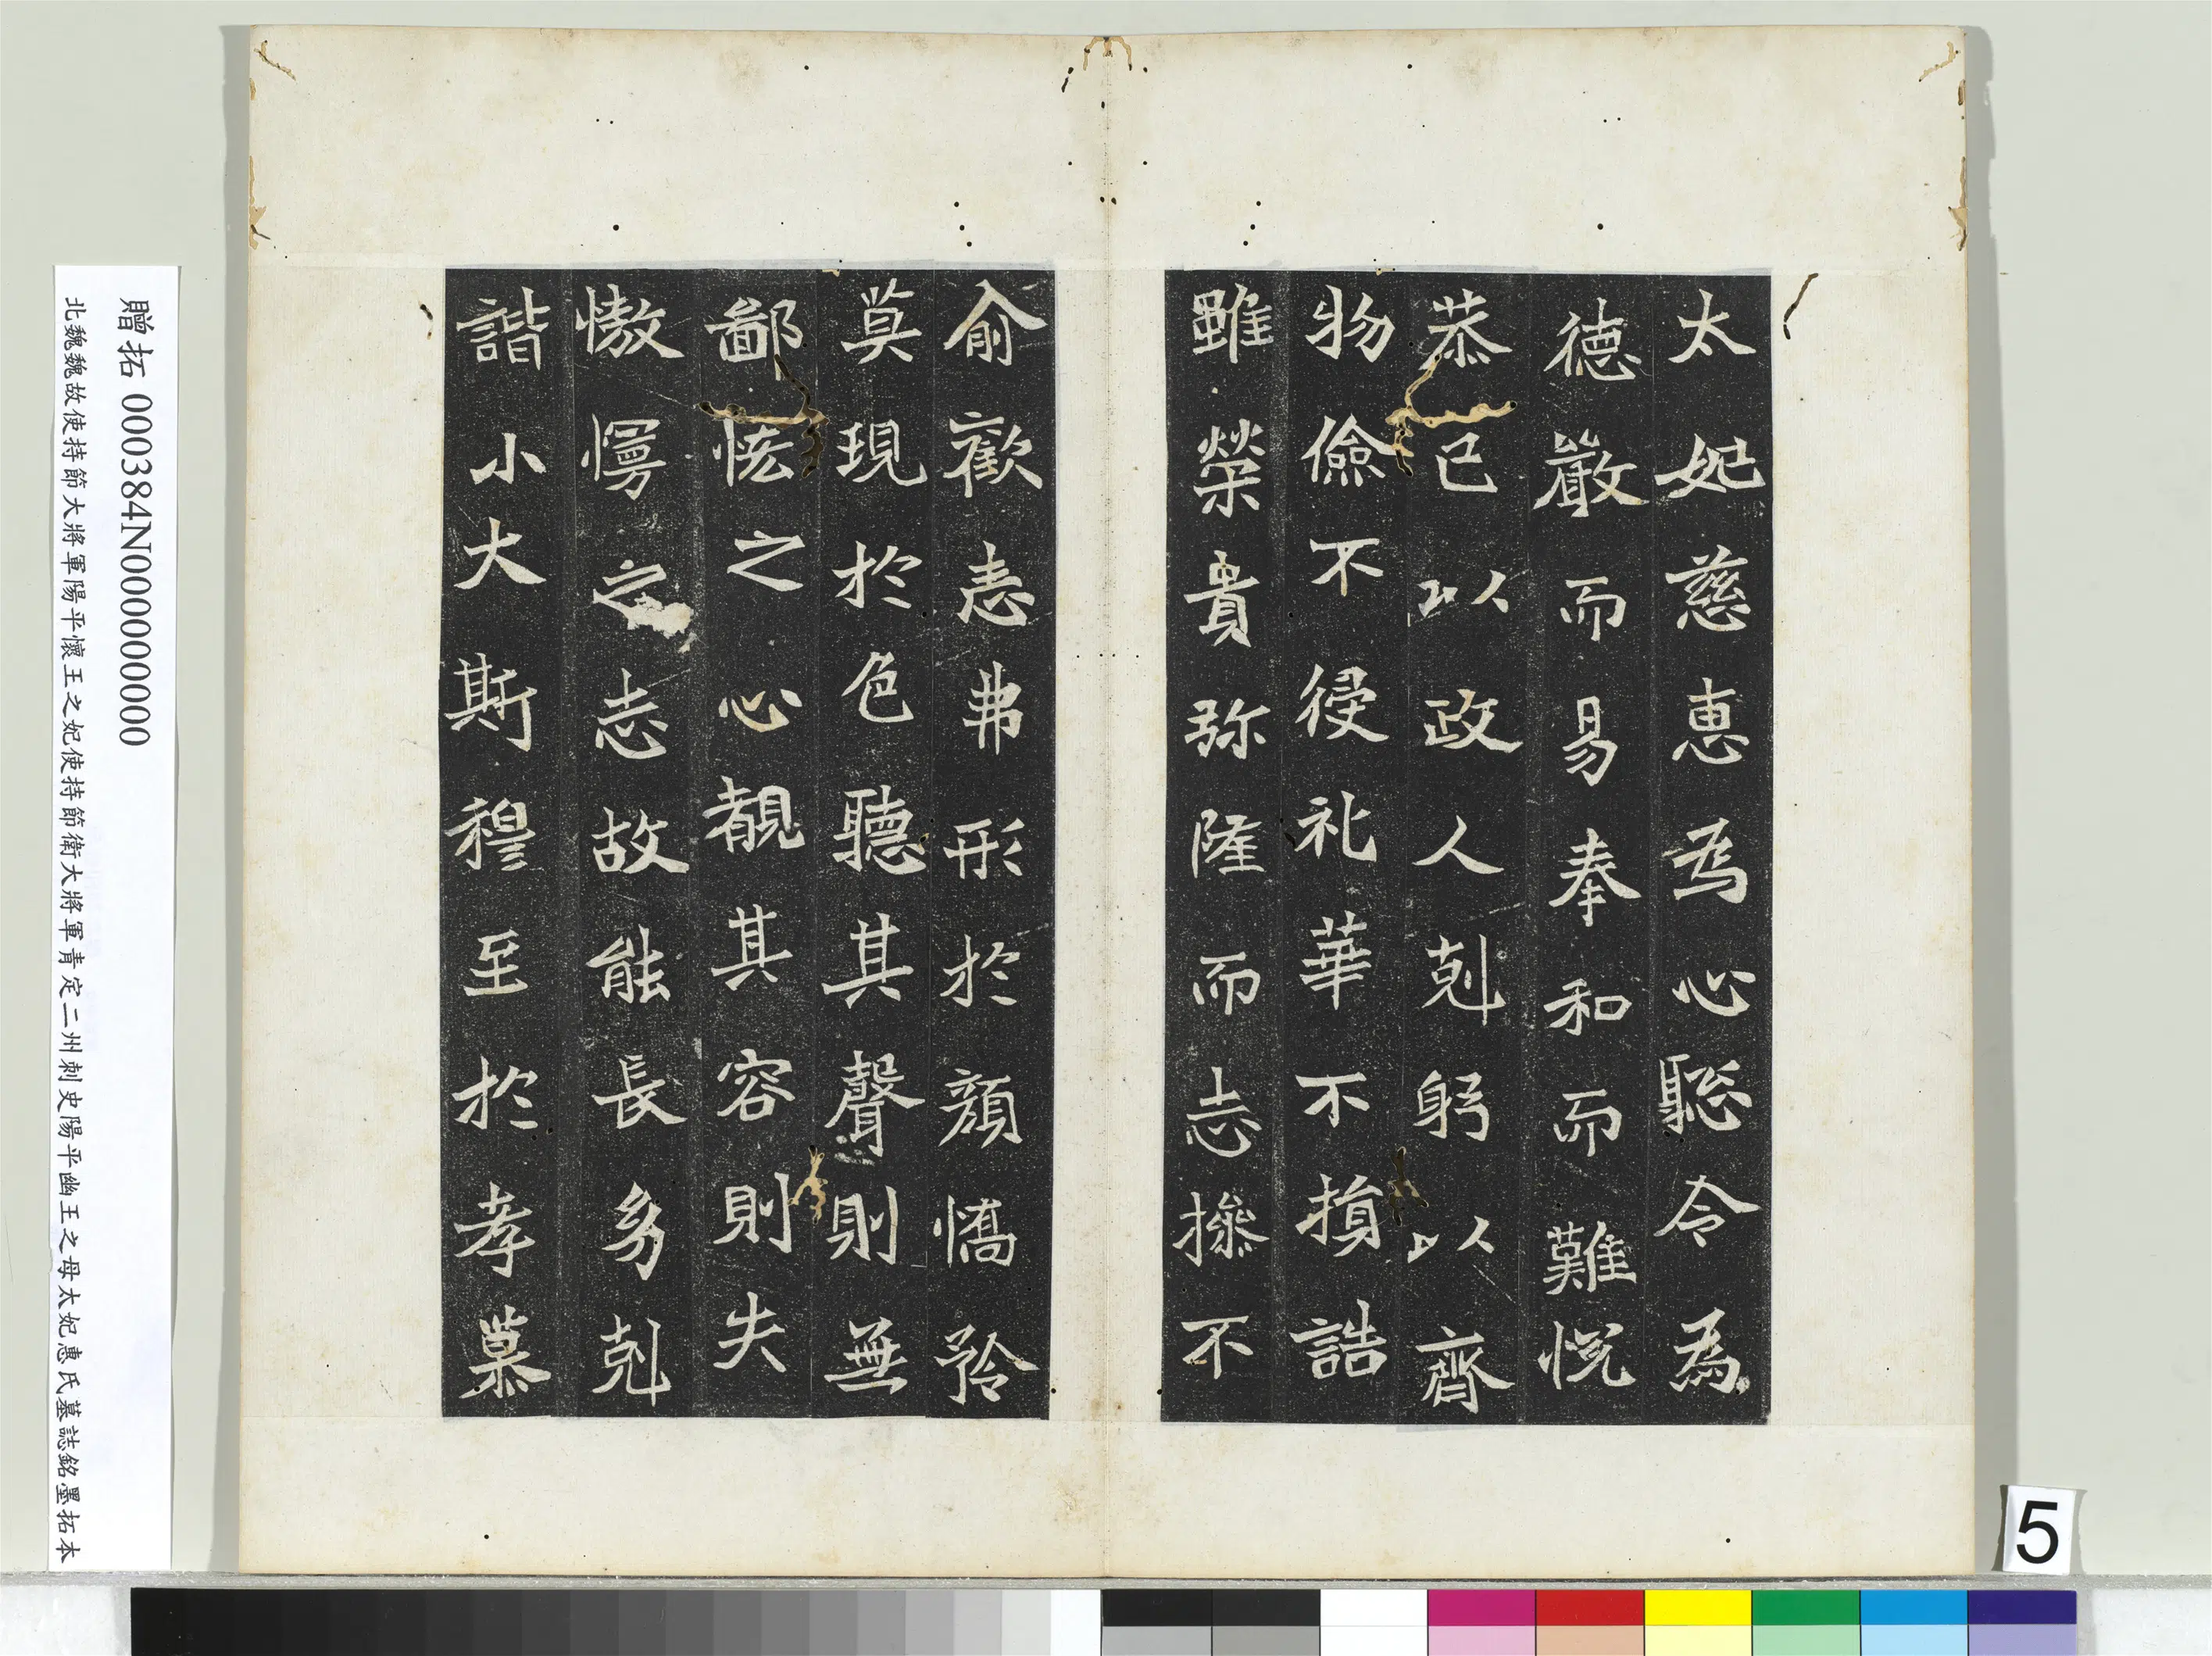 太妃慈惠為心聡令為
德嚴而易奉和而難悅
恭己以政人剋躬以齊
物儉不侵礼華不損誥
雖榮貴弥隆而志操不
俞歡恚弗形於顏憍矜
莫現於色聽其聲則無
鄙悋之心覩其容則失
慠慢之志故能長幼剋
諧小大斯穆至於孝慕
贈拓 000384N000000000
北魏魏故使持節大將軍陽平懷王之妃使持節衛大將軍青定二州刺史陽平幽王之母太妃惠氏墓誌銘墨拓本
5